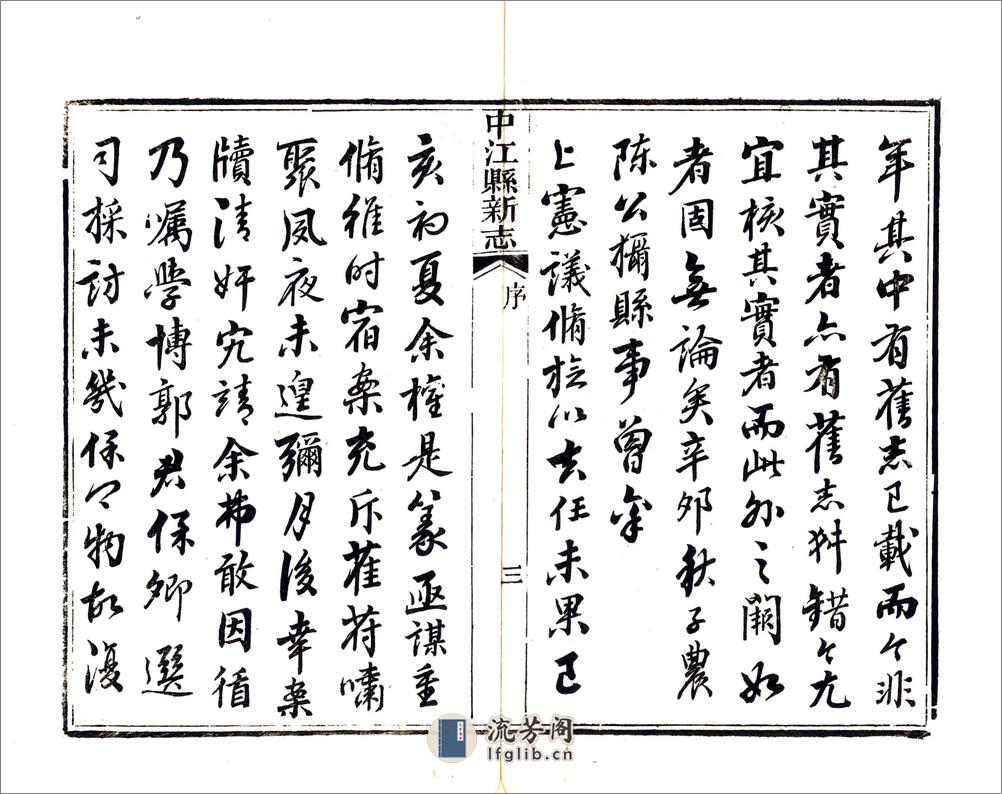 年其中有舊志已載而今非
其實者亦有舊志舛錯今尤
宜核其實者而此外之闕如
者固無論矣辛卯秋子農
陳公攝縣事曾奉
上憲議脩旋以去任未果己
中江縣新志
序
三
亥初夏余權是篆亟謀重
脩維時宿案充斥萑苻嘯
聚夙夜未遑彌月後幸案
牘清奸宄靖余弗敢因循
乃囑學博郭君保卿選
司採訪未幾保卿物故復
流芳阁
lfglib.cn